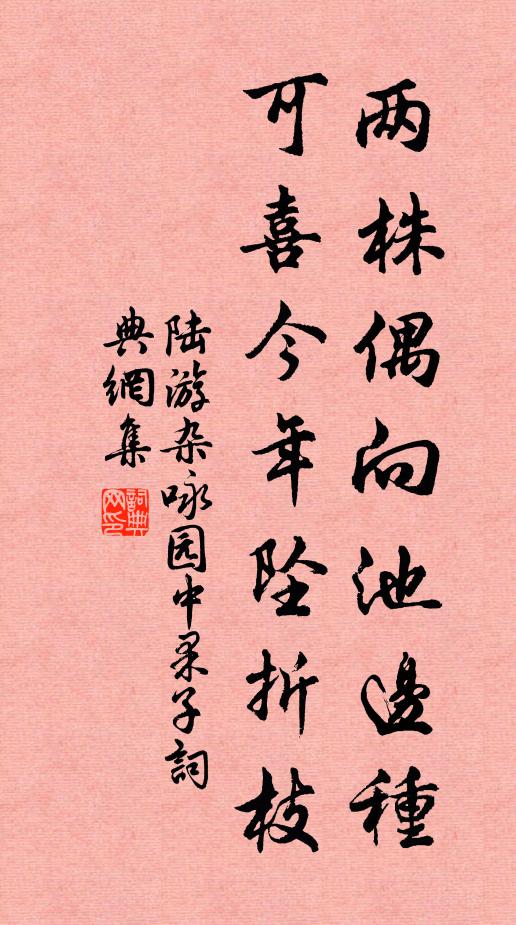 两株偶向池邊種
可喜今年坠折枝
陆游杂咏园中果子詞
典網集
詞典网印